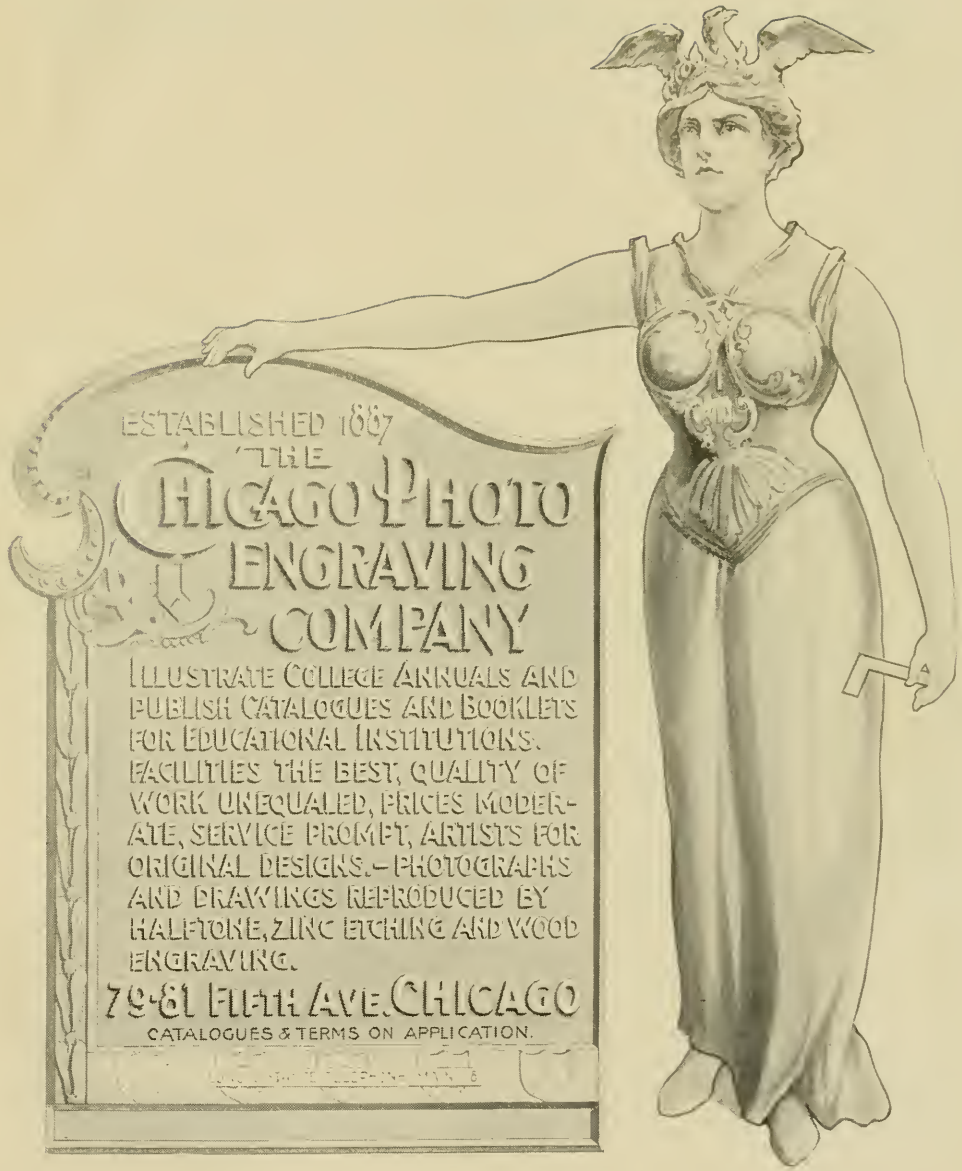 ESTABLISHED 1887
THE
CHICAGO PHOTO
ENGRAVING
COMPANY
ILLUSTRATE COLLEGE ANNUALS AND
PUBLISH CATALOGUES AND BOOKLETS
FOR EDUCATIONAL INSTITUTIONS.
FACILITIES THE BEST, QUALITY OF
WORK UNEQUALED, PRICES MODER-
ATE, SERVICE PROMPT, ARTISTS FOR
ORIGINAL DESIGNS.-PHOTOGRAPHS
AND DRAWINGS REPRODUCED BY
HALFTONE, ZINC ETCHING AND WOOD
ENGRAVING.
79-81 FIFTH AVE. CHICAGO
CATALOGUES & TERMS ON APPLICATION.